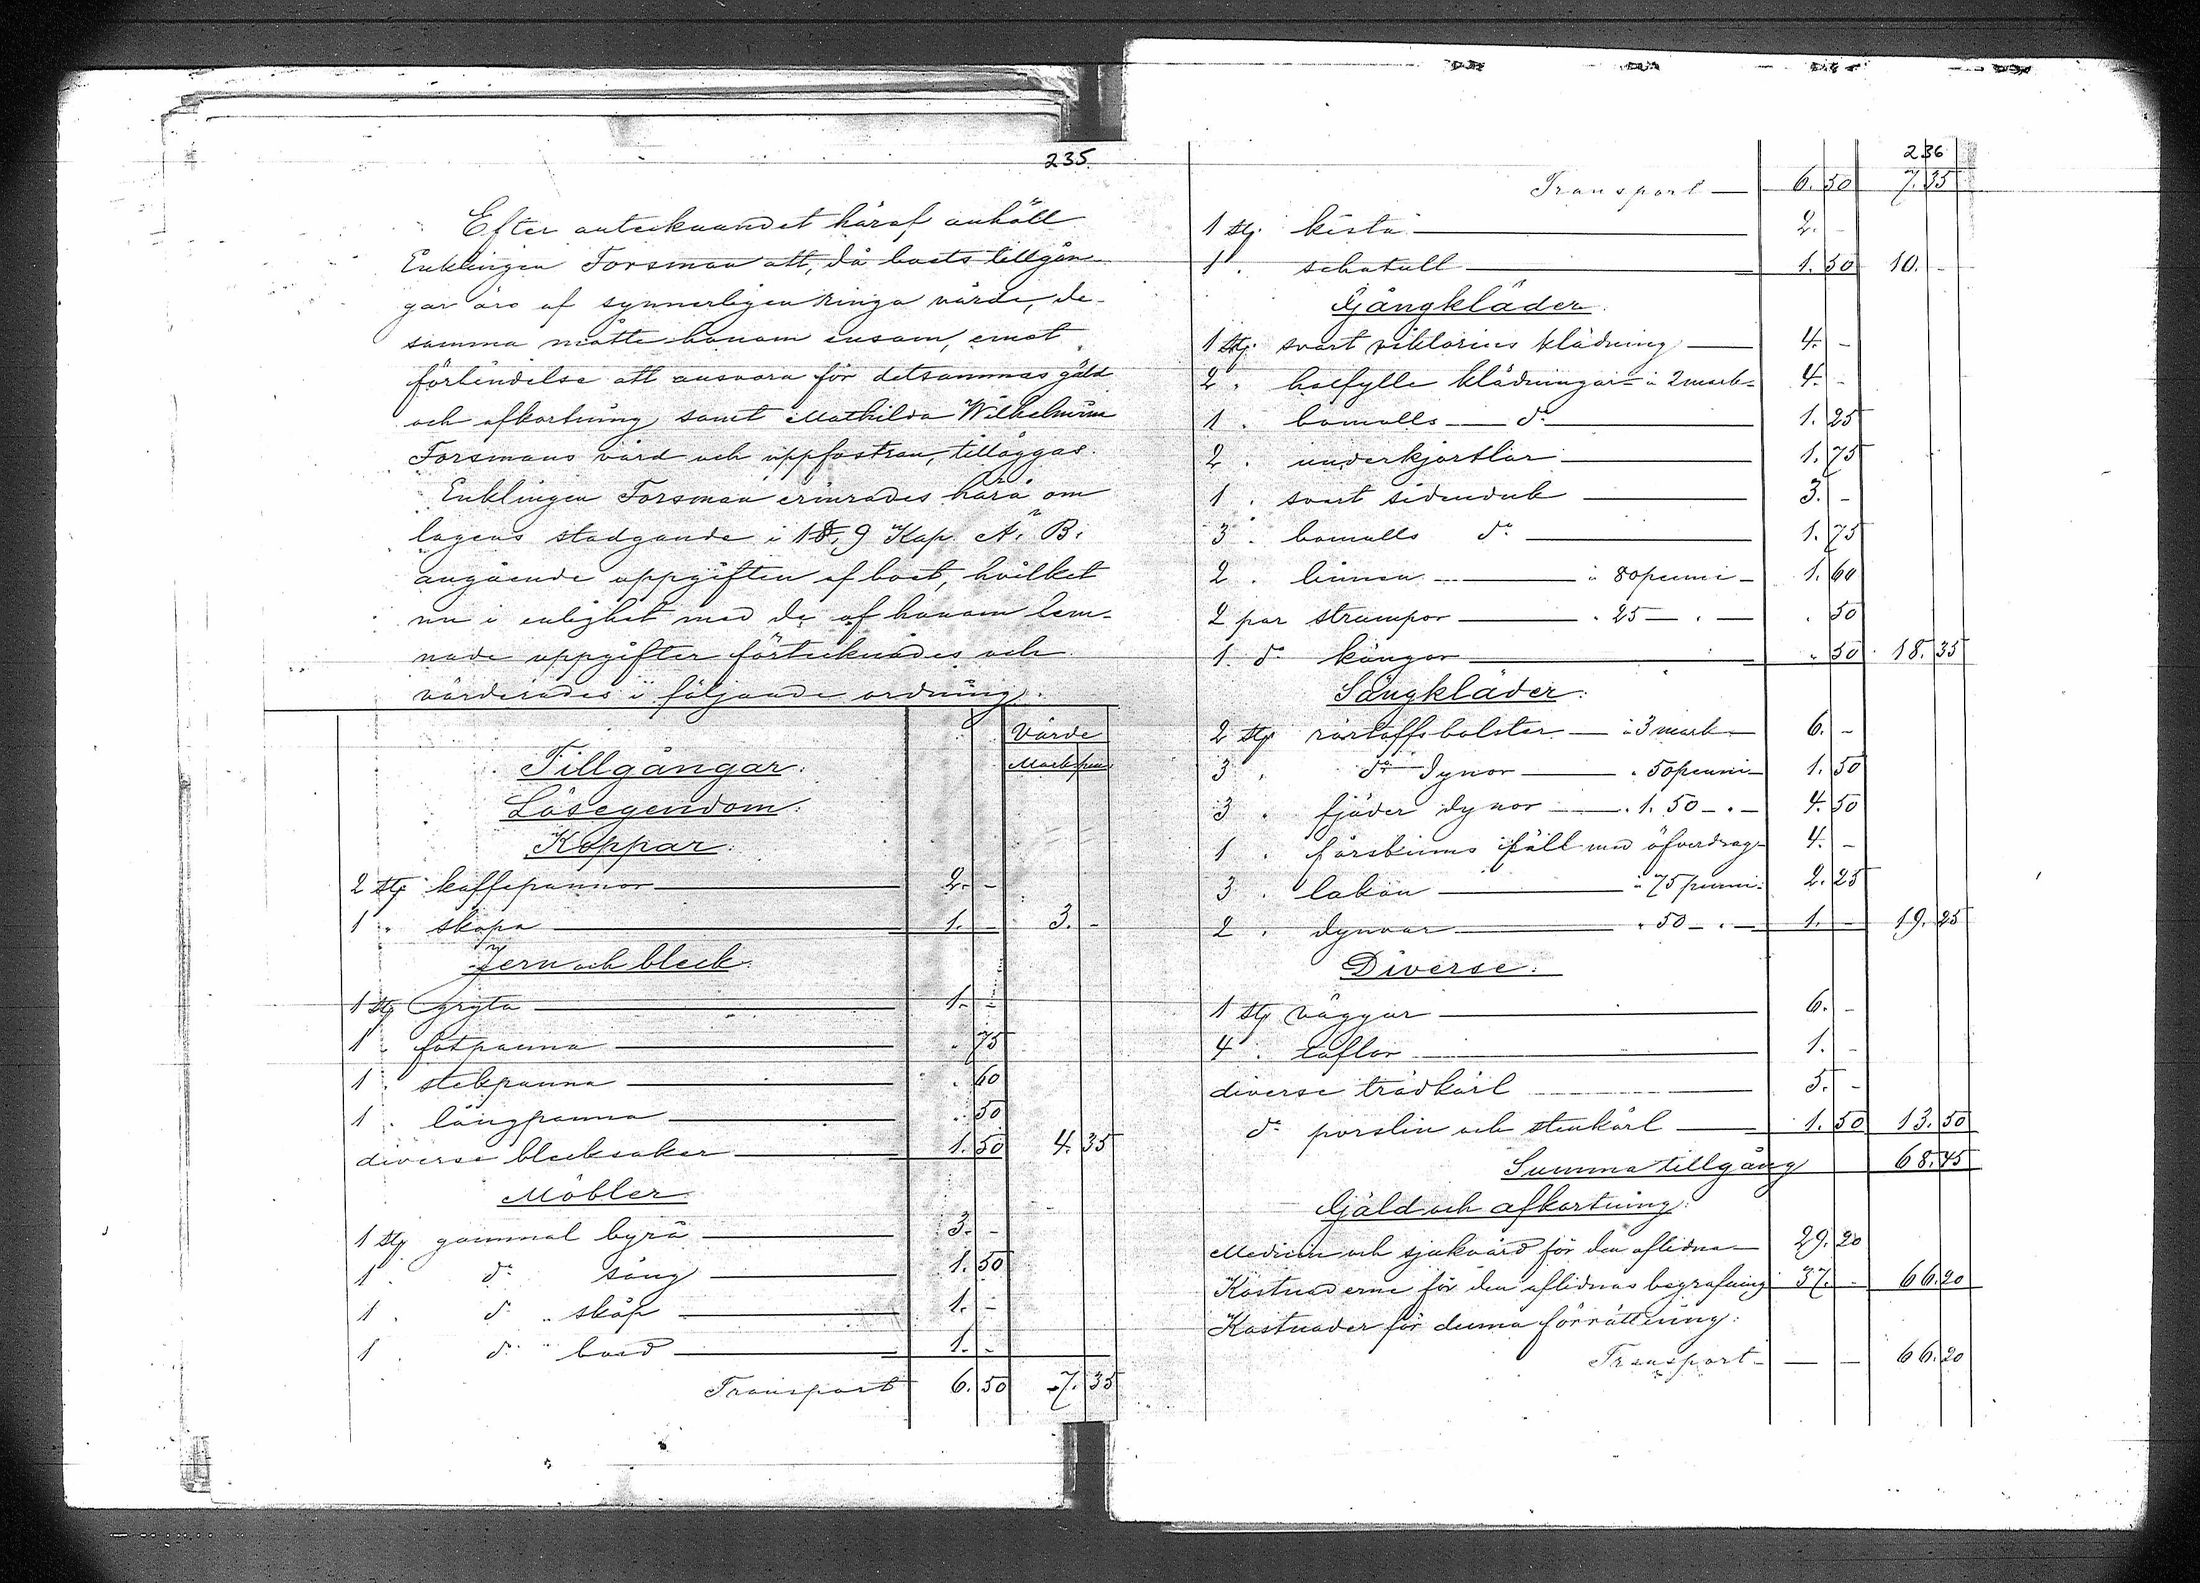 235.
Efter antecknandet häraf anhöll
Enklingen Forsman att, då boets tillgån-
gar äro af synnerligen ringa värde, de-
samma måtte honom ensam, emot
förbindelse att ansvara för detsammas gäld
och afkortning samt Mathilda Wilhelmina
Forsmans vård och uppfostran, tilläggas.
Enklingen Forsman erinrades härå om
lagens stadgande i 9 Kap. Ä. B.
angående uppgiften af boet, hvilket
nu i enlighet med de af honom lem-
nade uppgifter förtecknades och
värderades i följande ordning:
Värde
Mark pen
Tillgångar:
Lösegendom:
Koppar:
2 stg kaffepannor 2. -
1 " skopa 1. - 3. -
Jern och bleck:
1 stg gryta 1. -
1 " fotpanna . 75
1 " stekpanna . 60
1 " långpanna . 50
diverse blecksaker 1. 50 4. 35
Möbler
1 stg gammal byrå 3. -
1 " d:o säng 1. 50
1 " d:o " skåp 1. -
1 " d:o " bord 1. -
Transport 6. 50 7. 35
236
Transport 6. 50 7. 35
1 stg. kista 2. -
1 " schatull 1. 50 10. -
Gångkläder
1 stg. svart viktorins klädning 4. -
2 " halfylle klädningar à 2 mark 4. -
1 " bomulls d:o 1. 25
2 " underkjortlar 1. 75
1 " svart sidenduk 3. -
3 " bomulls d:o 1. 75
2 " linnen à 80 penni 1. 60
2 par strumpor " 25 " . 50
1 d:o kängor . 50 18. 35
Sängkläder:
2 stg bolster à 3 mark 6. -
3 " d:o dynor " 50 penni 1. 50
3 " fjäder dynor " 1. 50 " 4. 50
1 " fårskinns fäll med öfverdrag 4. -
3 " lakan à 75 penni 2. 25
2 " dynvar " 50 " 1. - 19. 25
Diverse:
1 stg väggur 6. -
4 " taflor 1. -
diverse trädkärl 5. -
d:o porslin och stenkärl 1. 50 13. 50
Summa tillgång 68. 45
Gäld och afkortning:
Medicin och sjukvård för den aflidna 29. 20
Kostnaderne för den aflidnas begrafning 37. - 66. 20
Kostnader för denna förrättning:
Transport - - 66. 20